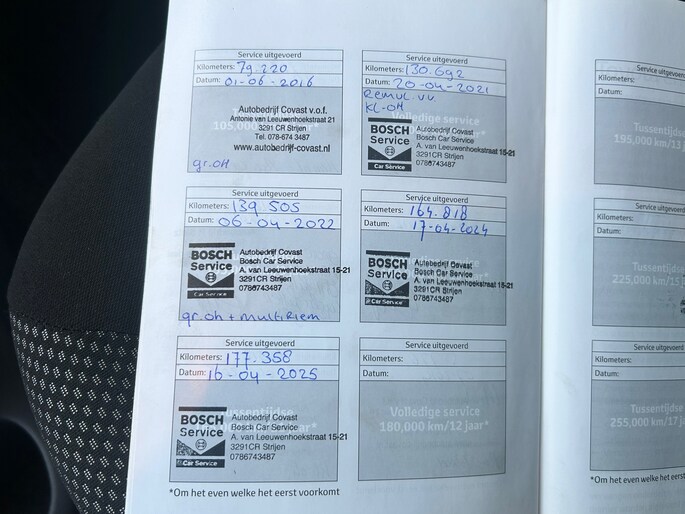 Service uitgevoerd
Kilometers: 79.220
Datum: 01-06-2016
105.000
Autobedrijf Covast v.o.f.
Antonie van Leeuwenhoekstraat 21
3291 CR Strijen
Tel. 078-674 3487
www.autobedrijf-covast.nl
gr.OH
Service uitgevoerd
Kilometers: 130.692
Datum: 20-04-2021
Remvl. vv.
KL-OH
Volledige service
BOSCH
Service
Car Service
Autobedrijf Covast
Bosch Car Service
A. van Leeuwenhoekstraat 15-21
3291CR Strijen
0786743487
Service uitgevoerd
Kilometers: 139.505
Datum: 06-04-2022
BOSCH
Service
Car Service
Autobedrijf Covast
Bosch Car Service
A. van Leeuwenhoekstraat 15-21
3291CR Strijen
0786743487
gr.oh + multiriem
Service uitgevoerd
Kilometers: 164.818
Datum: 17-04-2024
BOSCH
Service
Car Service
Autobedrijf Covast
Bosch Car Service
A. van Leeuwenhoekstraat 15-21
3291CR Strijen
0786743487
Service uitgevoerd
Kilometers: 177.358
Datum: 16-04-2025
BOSCH
Service
Car Service
Autobedrijf Covast
Bosch Car Service
A. van Leeuwenhoekstraat 15-21
3291CR Strijen
0786743487
Service uitgevoerd
Kilometers:
Datum:
Volledige service
180,000 km/12 jaar*
*Om het even welke het eerst voorkomt
Service uitgevoerd
Kilometers:
Datum:
Tussentijdse
195,000 km/13
Service uitgevoerd
Kilometers:
Datum:
Tussentijdse
225,000 km/15
Service uitgevoerd
Kilometers:
Datum:
Tussentijdse
255,000 km/17
*Om het even welke